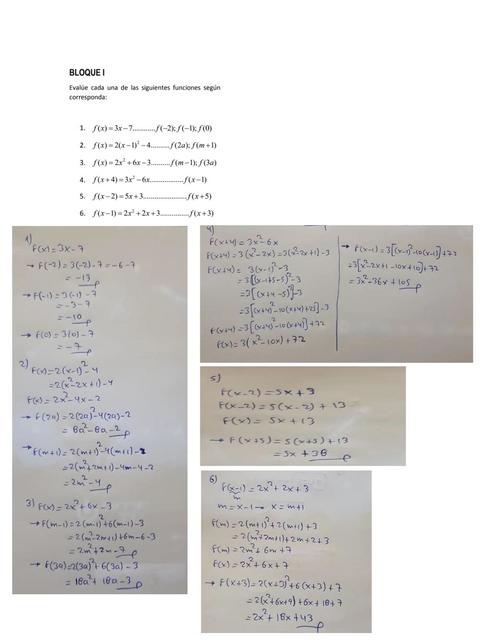 BLOQUE I
Evalúe cada una de las siguientes funciones según
corresponda:
1. f(x)=3x−7...........f(−2); f(−1); f(0)
2. f(x)=2(x−1)²−4.........f(2a); f(m+1)
3. f(x)=2x²+6x−3.........f(m−1); f(3a)
4. f(x+4)=3x²−6x.................f(x−1)
5. f(x−2)=5x+3......................f(x+5)
6. f(x−1)=2x²+2x+3..............f(x+3)
1)
F(x)=3x-7
→ F(-2)=3(-2)-7=-6-7
=-13
→ F(-1)=3(-1)-7
=-3-7
=-10
→ F(0)=3(0)-7
=-7
2)
F(x)=2(x-1)²-4
=2(x²-2x+1)-4
F(x)=2x²-4x-2
→ F(2a)=2(2a)²-4(2a)-2
=8a²-8a-2
→ F(m+1)=2(m+1)²-4(m+1)-2
=2(m²+2m+1)-4m-4-2
=2m²-4
3) F(x)=2x²+6x-3
→ F(m-1)=2(m-1)²+6(m-1)-3
=2(m²-2m+1)+6m-6-3
=2m²+2m-7
→ F(3a)=2(3a)²+6(3a)-3
=18a²+18a-3
4)
F(x+4)=3x²-6x
F(x+4)=3(x²-2x)=3(x²-2x+1)-3
F(x+4)=3(x-1)²-3
=3[(x-1+5-5)²]-3
=3[(x+4-5)²]-3
=3[(x+4)²-10(x+4)+25]-3
F(x+4)=3[(x+4)²-10(x+4)]+72
F(x)=3(x²-10x)+72
→ F(x-1)=3[(x-1)²-10(x-1)]+72
=3[x²-2x+1-10x+10]+72
=3x²-36x+105
5)
F(x-2)=5x+3
F(x-2)=5(x-2)+13
F(x)=5x+13
→ F(x+5)=5(x+5)+13
=5x+38
6)
F(x-1)=2x²+2x+3
m
m=x-1→ x=m+1
F(m)=2(m+1)²+2(m+1)+3
=2(m²+2m+1)+2m+2+3
F(m)=2m²+6m+7
F(x)=2x²+6x+7
→ F(x+3)=2(x+3)²+6(x+3)+7
=2(x²+6x+9)+6x+18+7
=2x²+18x+43